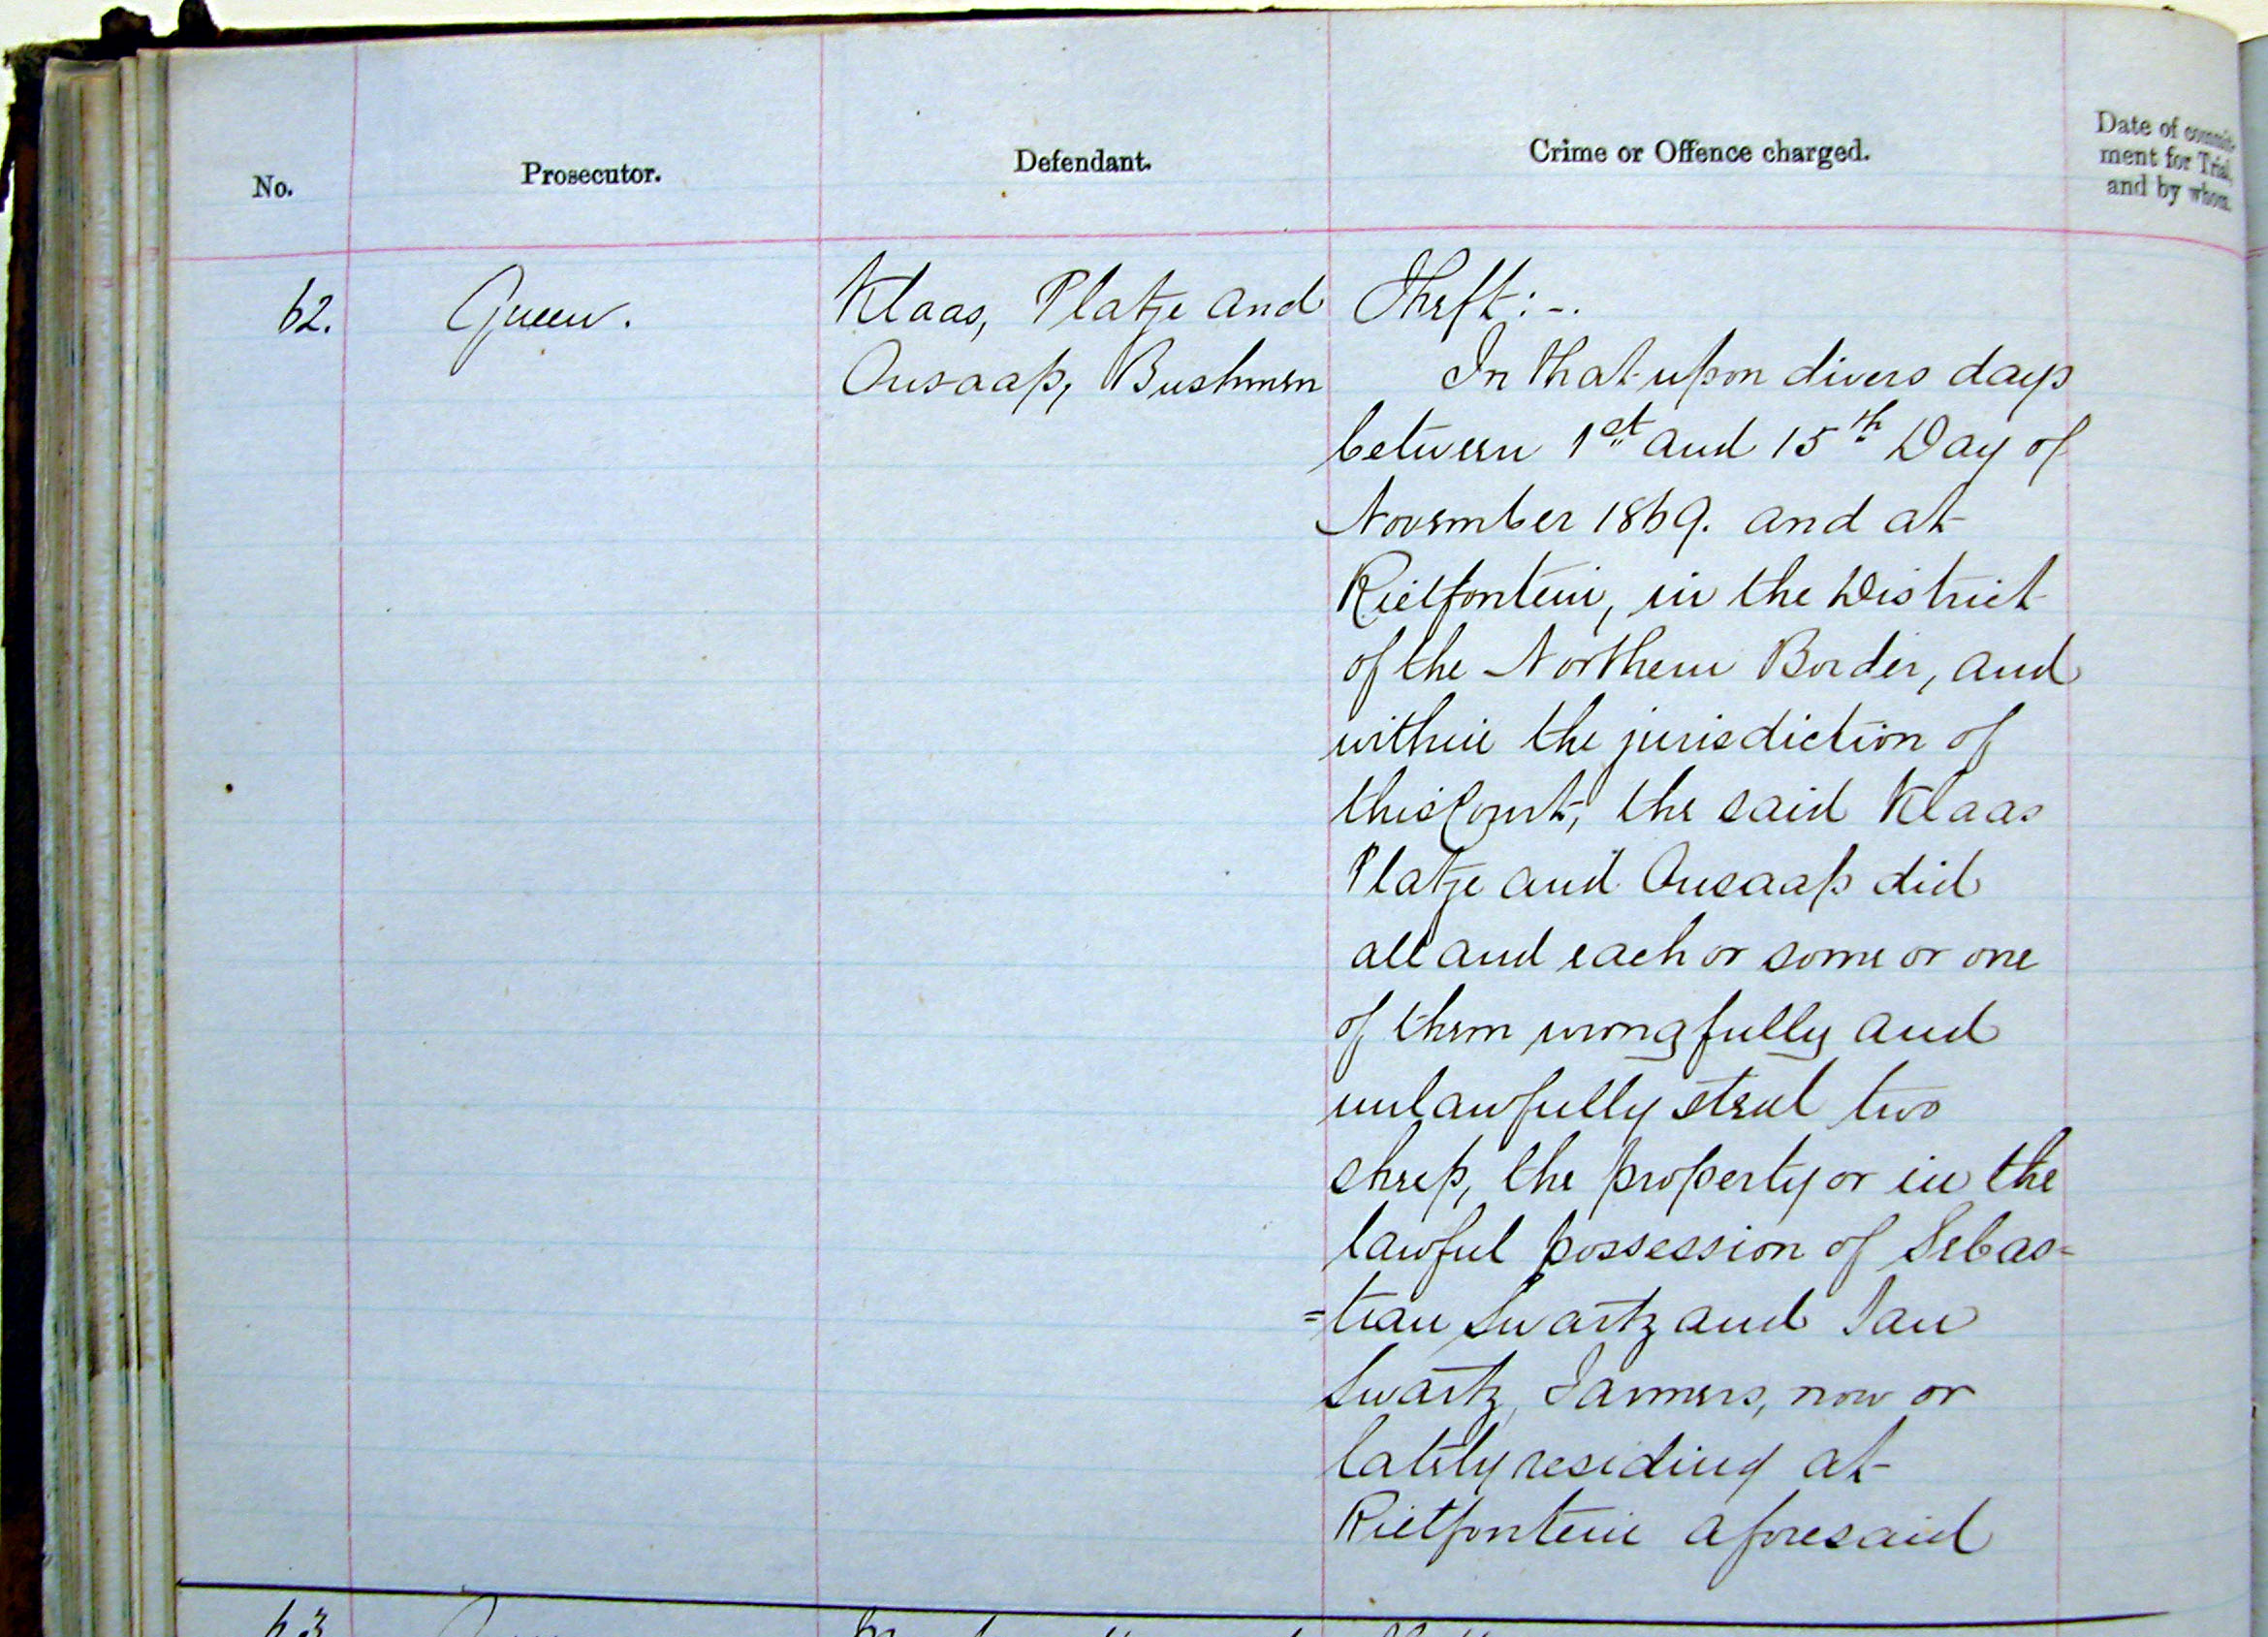 No.
Prosecutor.
Defendant.
Crime or Offence charged.
Date of commit-
ment for Trial,
and by whom.
62.
Queen.
Klaas, Platje and
Ousaap, Bushmen
Theft:-.
In that upon divers days
between 1st and 15th Day of
November 1869. and at
Rietfontein, in the District
of the Northern Border, and
within the jurisdiction of
this Court, the said Klaas
Platje and Ousaap did
all and each or some or one
of them wrongfully and
unlawfully steal two
sheep, the property or in the
lawful possession of Sebas=
=tian Swartz and Jan
Swartz, Farmers, now or
lately residing at
Rietfontein aforesaid
63